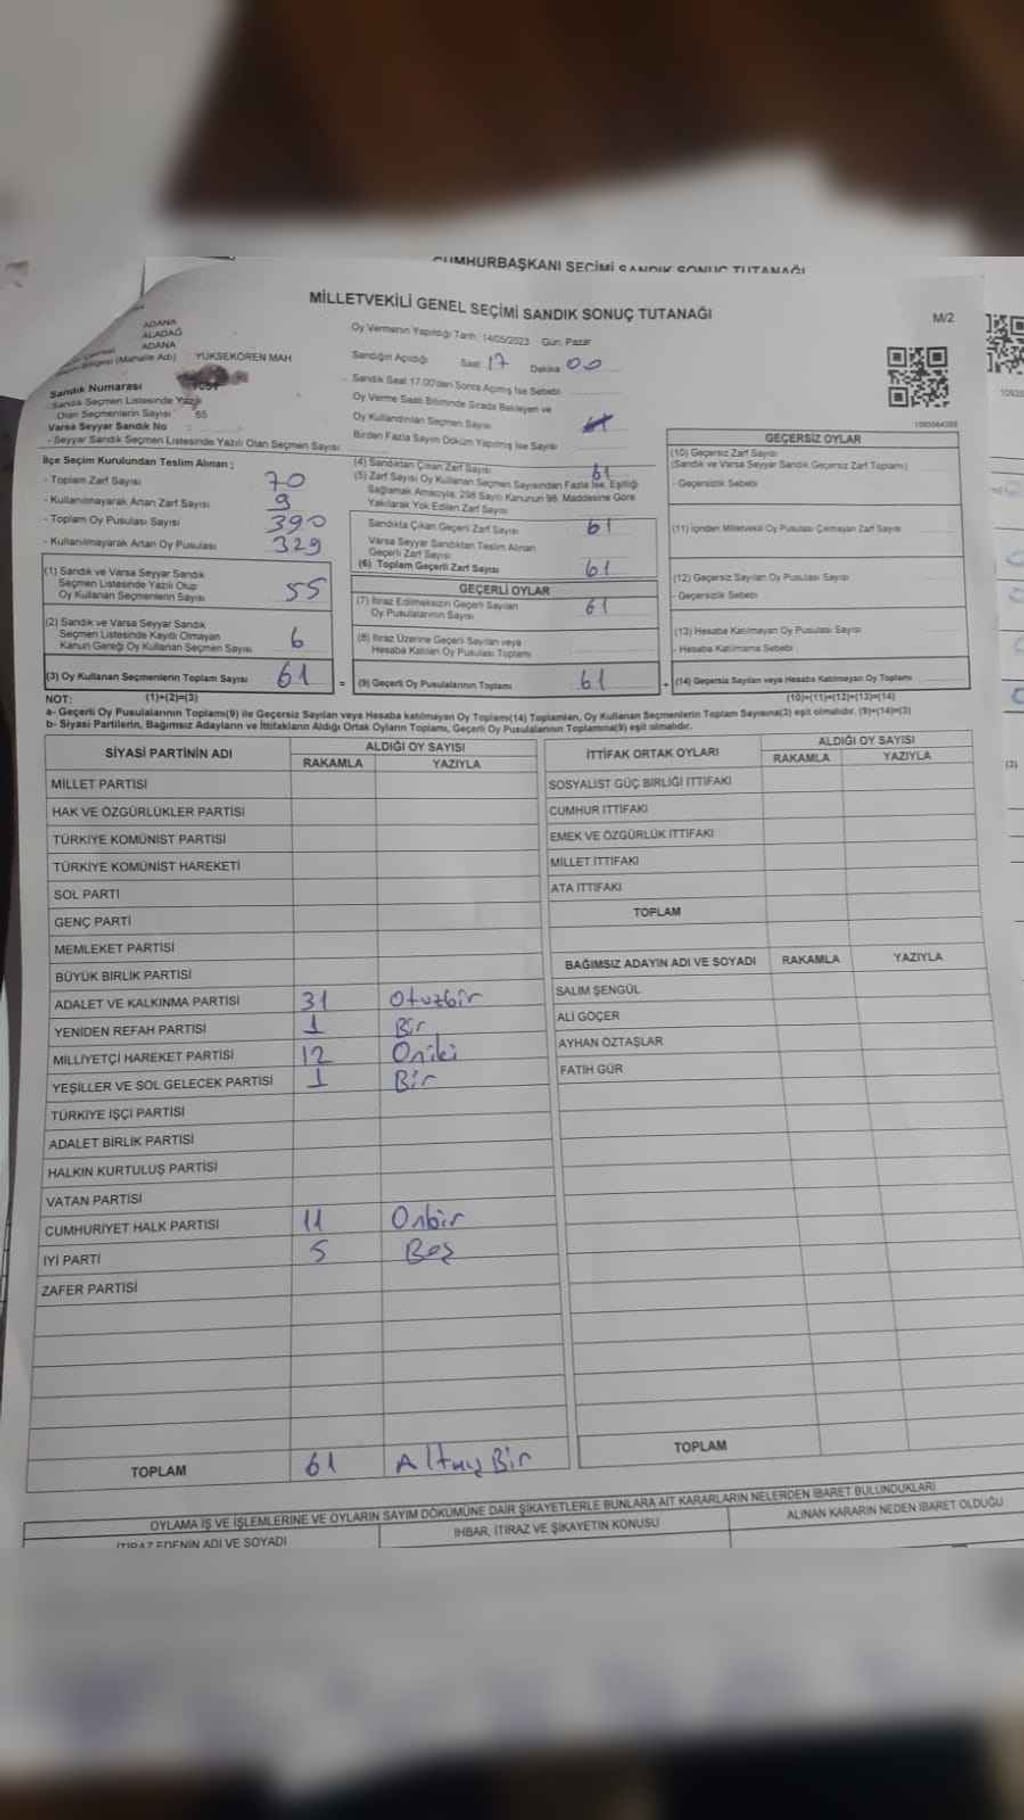 CUMHURBAŞKANI SEÇİMİ SANDIK SONUÇ TUTANAĞI
MİLLETVEKİLİ GENEL SEÇİMİ SANDIK SONUÇ TUTANAĞI
M/2
ADANA
ALADAĞ
ADANA
(Mahalle Adı) YÜKSEKÖREN MAH
Sandık Numarası
Sandık Seçmen Listesinde Yazılı
Olan Seçmenlerin Sayısı
Varsa Seyyar Sandık No
- Seyyar Sandık Seçmen Listesinde Yazılı Olan Seçmen Sayısı
Oy Vermenin Yapıldığı Tarih: 14/05/2023 Gün: Pazar
Sandığın Açıldığı Saat 17 Dakika 00
Sandık Saat 17.00'den Sonra Açılmış İse Sebebi
Oy Verme Saati Bitiminde Sırada Bekleyen ve
Oy Kullandırılan Seçmen Sayısı
Birden Fazla Sayım Döküm Yapılmış İse Sayısı
İlçe Seçim Kurulundan Teslim Alınan ;
- Toplam Zarf Sayısı 70
- Kullanılmayarak Artan Zarf Sayısı 9
- Toplam Oy Pusulası Sayısı 390
- Kullanılmayarak Artan Oy Pusulası 329
(1) Sandık ve Varsa Seyyar Sandık
Seçmen Listesinde Yazılı Olup
Oy Kullanan Seçmenlerin Sayısı 55
(2) Sandık ve Varsa Seyyar Sandık
Seçmen Listesinde Kayıtlı Olmayan
Kanun Gereği Oy Kullanan Seçmen Sayısı 6
(3) Oy Kullanan Seçmenlerin Toplam Sayısı 61
(4) Sandıktan Çıkan Zarf Sayısı 61
(5) Zarf Sayısı Oy Kullanan Seçmen Sayısından Fazla İse, Eşitliği
Sağlamak Amacıyla, 298 Sayılı Kanunun 98. Maddesine Göre
Yakılarak Yok Edilen Zarf Sayısı
Sandıkta Çıkan Geçerli Zarf Sayısı 61
Varsa Seyyar Sandıktan Teslim Alınan
Geçerli Zarf Sayısı
(6) Toplam Geçerli Zarf Sayısı 61
GEÇERLİ OYLAR
(7) İtiraz Edilmeksizin Geçerli Sayılan
Oy Pusulalarının Sayısı 61
(8) İtiraz Üzerine Geçerli Sayılan veya
Hesaba Katılan Oy Pusulası Toplamı
= (9) Geçerli Oy Pusulalarının Toplamı 61
GEÇERSİZ OYLAR
(10) Geçersiz Zarf Sayısı
(Sandık ve Varsa Seyyar Sandık Geçersiz Zarf Toplamı)
- Geçersizlik Sebebi
(11) İçinden Milletvekili Oy Pusulası Çıkmayan Zarf Sayısı
(12) Geçersiz Sayılan Oy Pusulası Sayısı
- Geçersizlik Sebebi
(13) Hesaba Katılmayan Oy Pusulası Sayısı
- Hesaba Katılmama Sebebi
+ (14) Geçersiz Sayılan veya Hesaba Katılmayan Oy Toplamı
NOT: (1)+(2)=(3)
(10)+(11)+(12)+(13)=(14)
a- Geçerli Oy Pusulalarının Toplamı(9) ile Geçersiz Sayılan veya Hesaba katılmayan Oy Toplamı(14) Toplamları, Oy Kullanan Seçmenlerin Toplam Sayısına(3) eşit olmalıdır. (9)+(14)=(3)
b- Siyasi Partilerin, Bağımsız Adayların ve İttifakların Aldığı Ortak Oyların Toplamı, Geçerli Oy Pusulalarının Toplamına(9) eşit olmalıdır.
SİYASİ PARTİNİN ADI ALDIĞI OY SAYISI
RAKAMLA YAZIYLA
MİLLET PARTİSİ
HAK VE ÖZGÜRLÜKLER PARTİSİ
TÜRKİYE KOMÜNİST PARTİSİ
TÜRKİYE KOMÜNİST HAREKETİ
SOL PARTİ
GENÇ PARTİ
MEMLEKET PARTİSİ
BÜYÜK BİRLİK PARTİSİ
ADALET VE KALKINMA PARTİSİ 31 Otuzbir
YENİDEN REFAH PARTİSİ 1 Bir
MİLLİYETÇİ HAREKET PARTİSİ 12 Oniki
YEŞİLLER VE SOL GELECEK PARTİSİ 1 Bir
TÜRKİYE İŞÇİ PARTİSİ
ADALET BİRLİK PARTİSİ
HALKIN KURTULUŞ PARTİSİ
VATAN PARTİSİ
CUMHURİYET HALK PARTİSİ 11 Onbir
İYİ PARTİ 5 Beş
ZAFER PARTİSİ
TOPLAM 61 AltmışBir
İTTİFAK ORTAK OYLARI ALDIĞI OY SAYISI
RAKAMLA YAZIYLA
SOSYALİST GÜÇ BİRLİĞİ İTTİFAKI
CUMHUR İTTİFAKI
EMEK VE ÖZGÜRLÜK İTTİFAKI
MİLLET İTTİFAKI
ATA İTTİFAKI
TOPLAM
BAĞIMSIZ ADAYIN ADI VE SOYADI RAKAMLA YAZIYLA
SALİM ŞENGÜL
ALİ GÖÇER
AYHAN ÖZTAŞLAR
FATİH GÜR
TOPLAM
OYLAMA İŞ VE İŞLEMLERİNE VE OYLARIN SAYIM DÖKÜMÜNE DAİR ŞİKAYETLERLE BUNLARA AİT KARARLARIN NELERDEN İBARET BULUNDUKLARI
İTİRAZ EDENİN ADI VE SOYADI
İHBAR, İTİRAZ VE ŞİKAYETİN KONUSU
ALINAN KARARIN NEDEN İBARET OLDUĞU